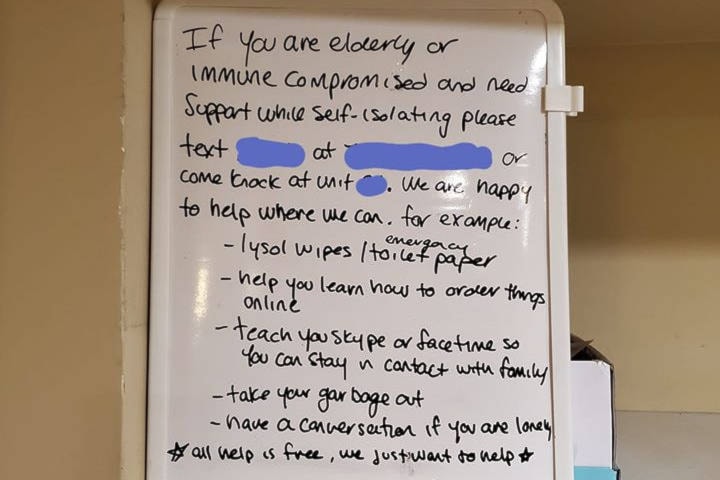 If you are elderly or
immune compromised and need
Support while self-isolating please
text at or
come knock at unit . We are happy
to help where we can. for example:
- lysol wipes / emergency toilet paper
- help you learn how to order things
online
- teach you skype or facetime so
you can stay in contact with family
- take your garbage out
- have a conversation if you are lonely
☆ all help is free, we just want to help ☆